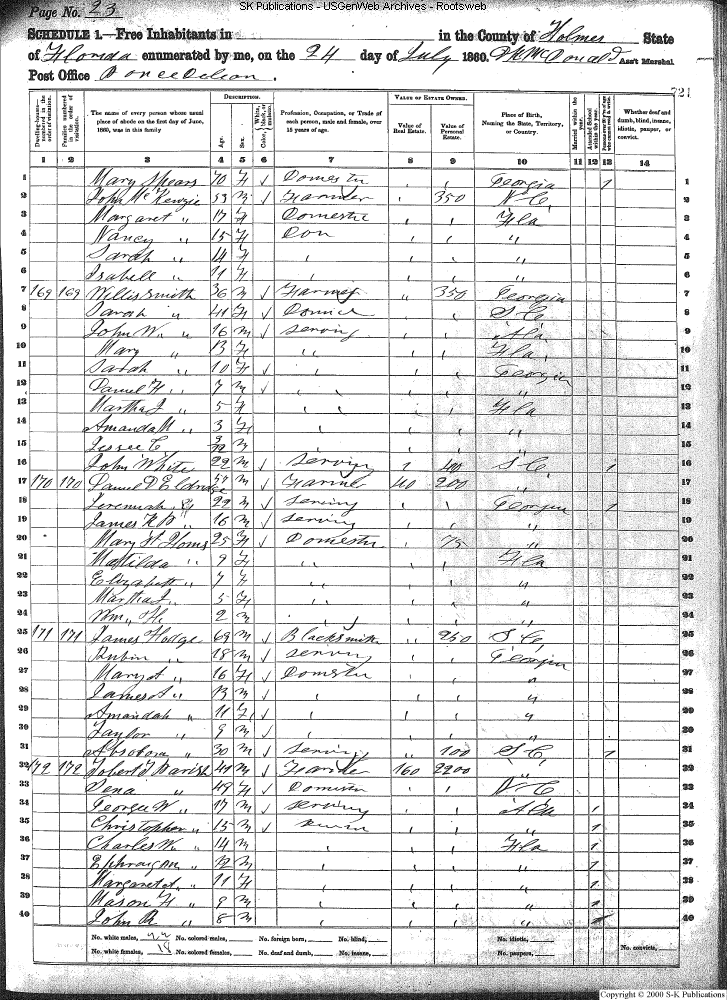 SK Publications - USGenWeb Archives - Rootsweb
Page No. 23
SCHEDULE 1.—Free Inhabitants in in the County of Holmes State
of Florida enumerated by me, on the 24 day of July 1860. McDonald Ass't Marshal
Post Office
221
DESCRIPTION. VALUE OF ESTATE OWNED.
Dwelling-houses—numbered in the order of visitation. Families numbered in the order of visitation. The name of every person whose usual place of abode on the first day of June, 1860, was in this family Age. Sex. Color, White, black, or mulatto. Profession, Occupation, or Trade of each person, male and female, over 15 years of age. Value of Real Estate. Value of Personal Estate. Place of Birth, Naming the State, Territory, or Country. Married within the year. Attended School within the year. Whether deaf and dumb, blind, insane, idiotic, pauper, or convict.
1 2 3 4 5 6 7 8 9 10 11 12 13 14
1 Mary Spears 70 F Georgia 1 1
2 John McKenzie 53 M Farmer 350 N C 2
3 Margaret " 17 F Domestic Fla 3
4 Nancy " 15 F " 4
5 Sarah " 14 F " 5
6 Isabell " 11 F " 6
7 169 169 Willis Smith 36 M Farmer " 350 Georgia 7
8 Sarah " 41 F S C 8
9 John W. " 16 M Serving Ala 9
10 Mary " 13 F " Fla 10
11 Sarah " 10 F Georgia 11
12 Daniel H. " 7 M " 12
13 Martha J " 5 F Fla 13
14 Amanda M " 3 F " 14
15 Jessee C M " 15
16 John White 22 M Serving 400 S C 1 16
17 170 170 Daniel D Eldridge 57 M 40 200 " 17
18 Jeremiah 22 M Serving Georgia 1 18
19 James K P " 16 M Serving " 19
20 Mary 25 F 75 " 20
21 Matilda " 9 F Fla 21
22 Elizabeth " 7 F " 22
23 Martha J " 5 F " 23
24 Wm. H. 2 M " 24
25 171 171 James Hodge 69 M Blacksmith " 250 S C 25
26 Rubin " 18 M Serving Georgia 26
27 Mary A " 16 F Domestic " 27
28 James A " 13 M " 28
29 Amandah " 11 F " 29
30 Taylor " 9 M " 30
31 " 30 M Serving " 100 S C 1 31
32 172 172 Robert T Parish 41 M Farmer 160 2200 " 32
33 " 49 F N C 33
34 George W " 17 M Serving Ala 1 34
35 Christopher " 15 M " 1 35
36 Charles W. " 14 M Fla 1 36
37 " 12 M " 1 37
38 Margaret A. " 11 F " 1 38
39 Mason H " 9 M " 1 39
40 John R " 8 M " 40
No. white males, 22 No. colored males, No. foreign born, No. blind, No. idiotic,
No. white females, 18 No. colored females, No. deaf and dumb, No. insane, No. paupers, No. convicts,
Copyright © 2000 S-K Publications